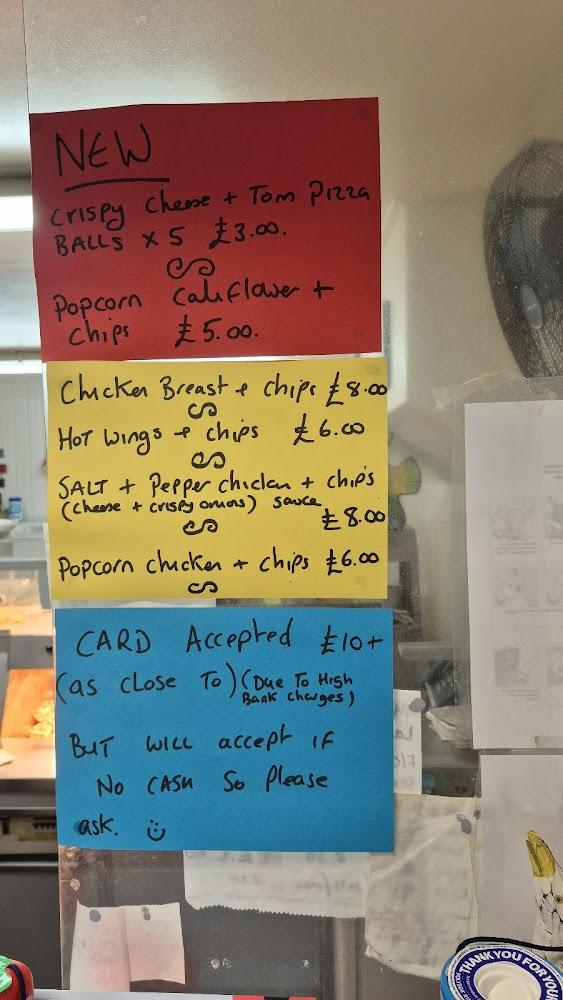 NEW
CRISPY Cheese + Tom PIZZA
BALLS X 5 £3.00.
POPCORN CaliFlower +
Chips £5.00.
Chicken Breast + chips £8.00
HOT Wings + chips £6.00
SALT + Pepper chicken + chips
(cheese + crispy onions) sauce
£8.00
Popcorn chicken + chips £6.00
CARD Accepted £10+
(as close To) (Due To High
Bank charges)
BUT will accept if
No CASH So Please
ask.
THANK YOU FOR YOUR